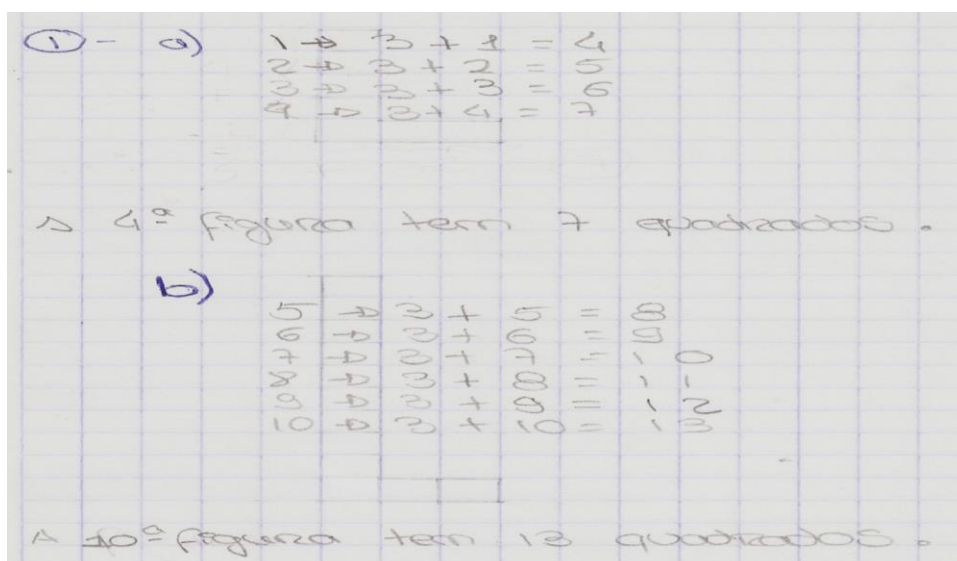 1 - a) 1 → 3 + 1 = 4
2 → 3 + 2 = 5
3 → 3 + 3 = 6
4 → 3 + 4 = 7
A 4ª figura tem 7 quadrados.
b)
5 → 3 + 5 = 8
6 → 3 + 6 = 9
7 → 3 + 7 = 10
8 → 3 + 8 = 11
9 → 3 + 9 = 12
10 → 3 + 10 = 13
A 10ª figura tem 13 quadrados.